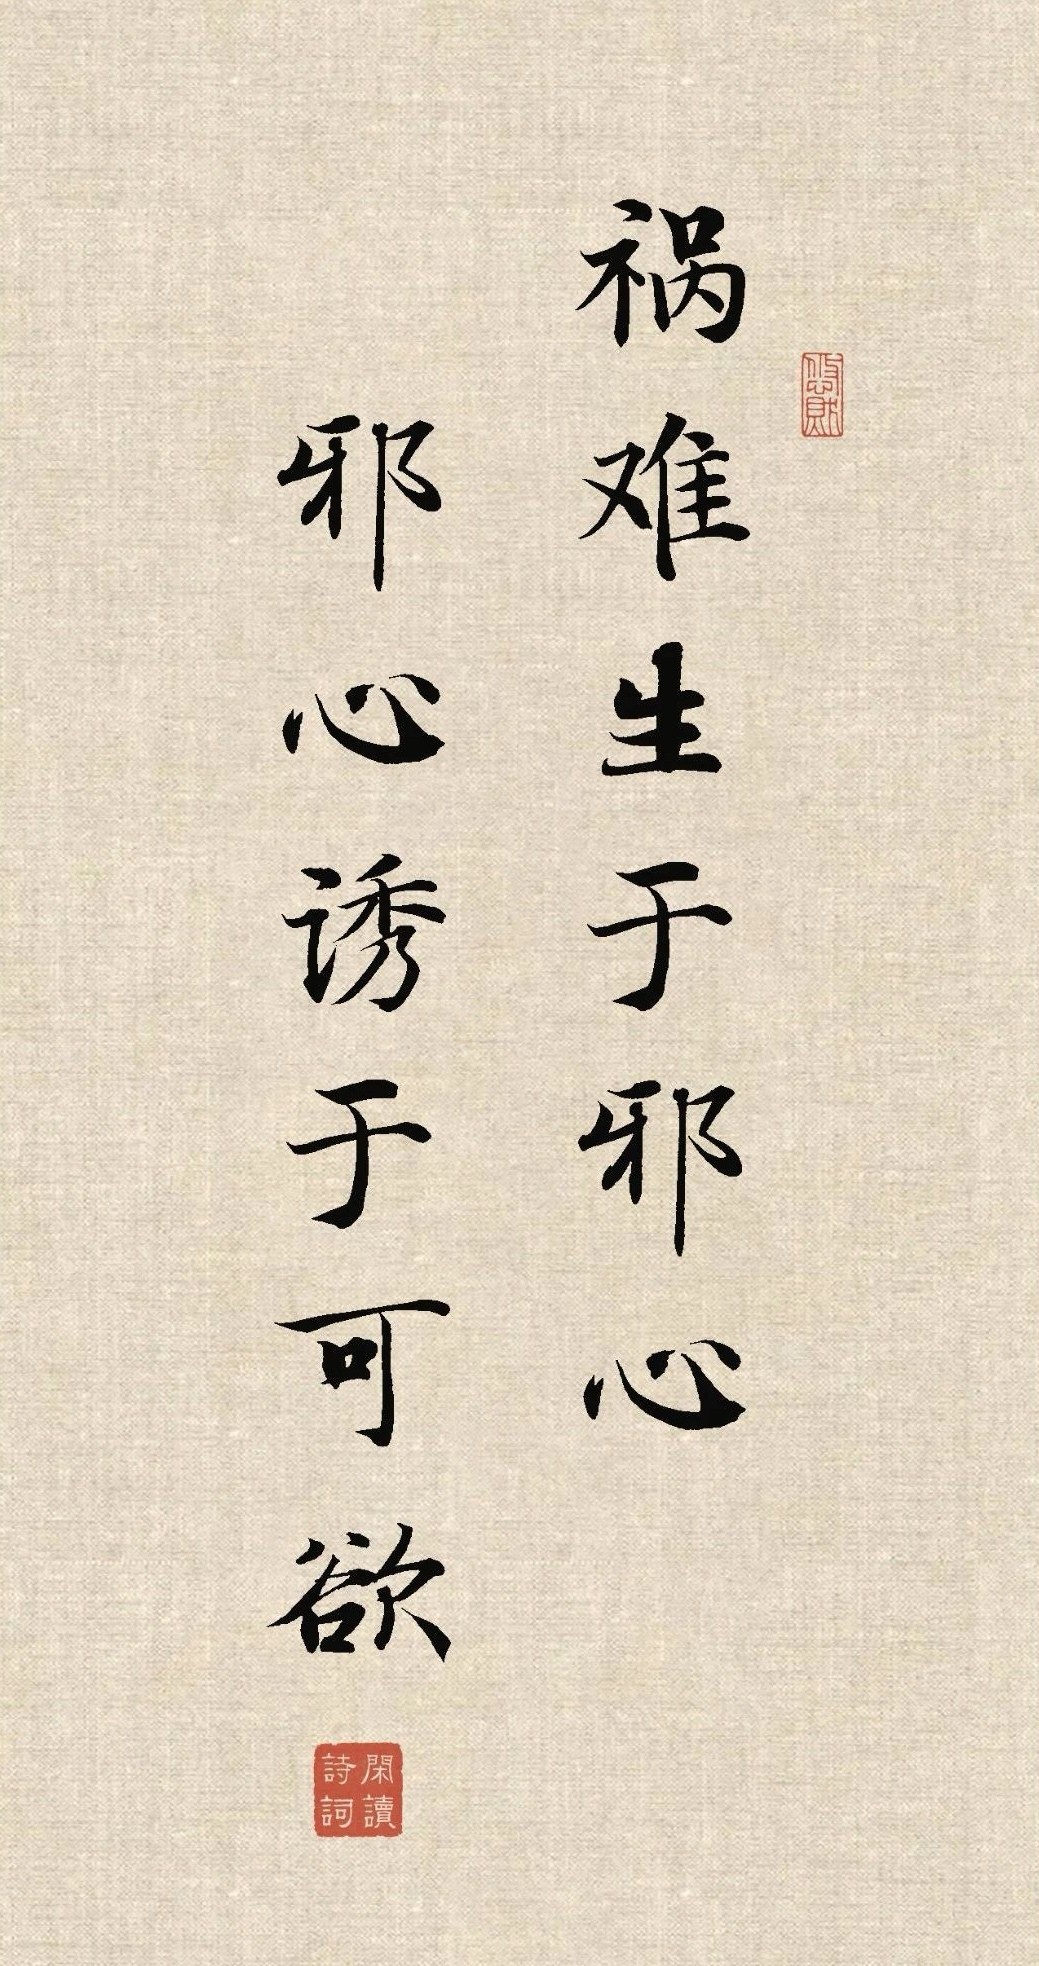 祸难生于邪心
邪心诱于可欲
閑讀
詩詞